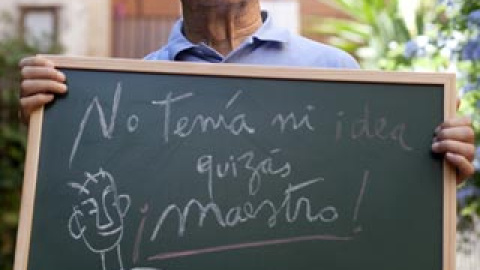 No Tenía ni idea
quizás
¡maestro!